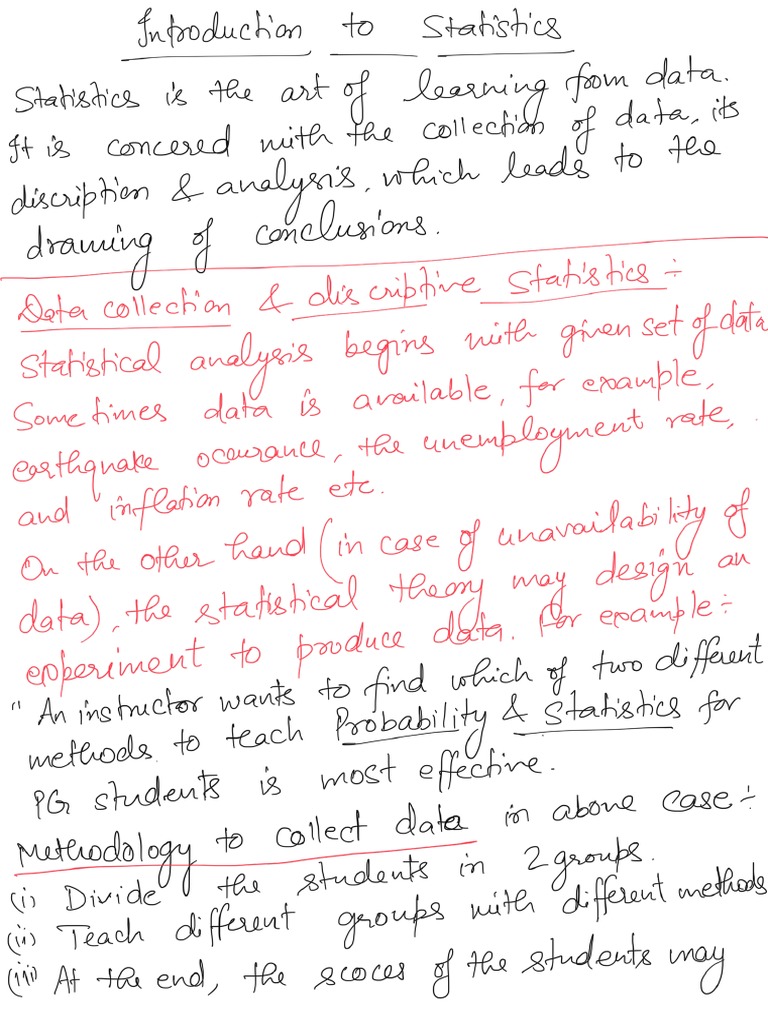 Introduction to Statistics
Statistics is the art of learning from data.
It is concered with the collection of data, its
discription & analysis, which leads to the
drawing of conclusions.
Data collection & discriptive Statistics :-
Statistical analysis begins with given set of data
Some times data is available, for example,
earthquake occurance, the unemployment rate,
and inflation rate etc.
On the other hand (in case of unavailability of
data), the statistical theory may design an
experiment to produce data. For example :-
" An instructor wants to find which of two different
methods to teach Probability & Statistics for
PG students is most effective.
Methodology to collect data in above case :-
(i) Divide the students in 2 groups.
(ii) Teach different groups with different methods
(iii) At the end, the scores of the students may